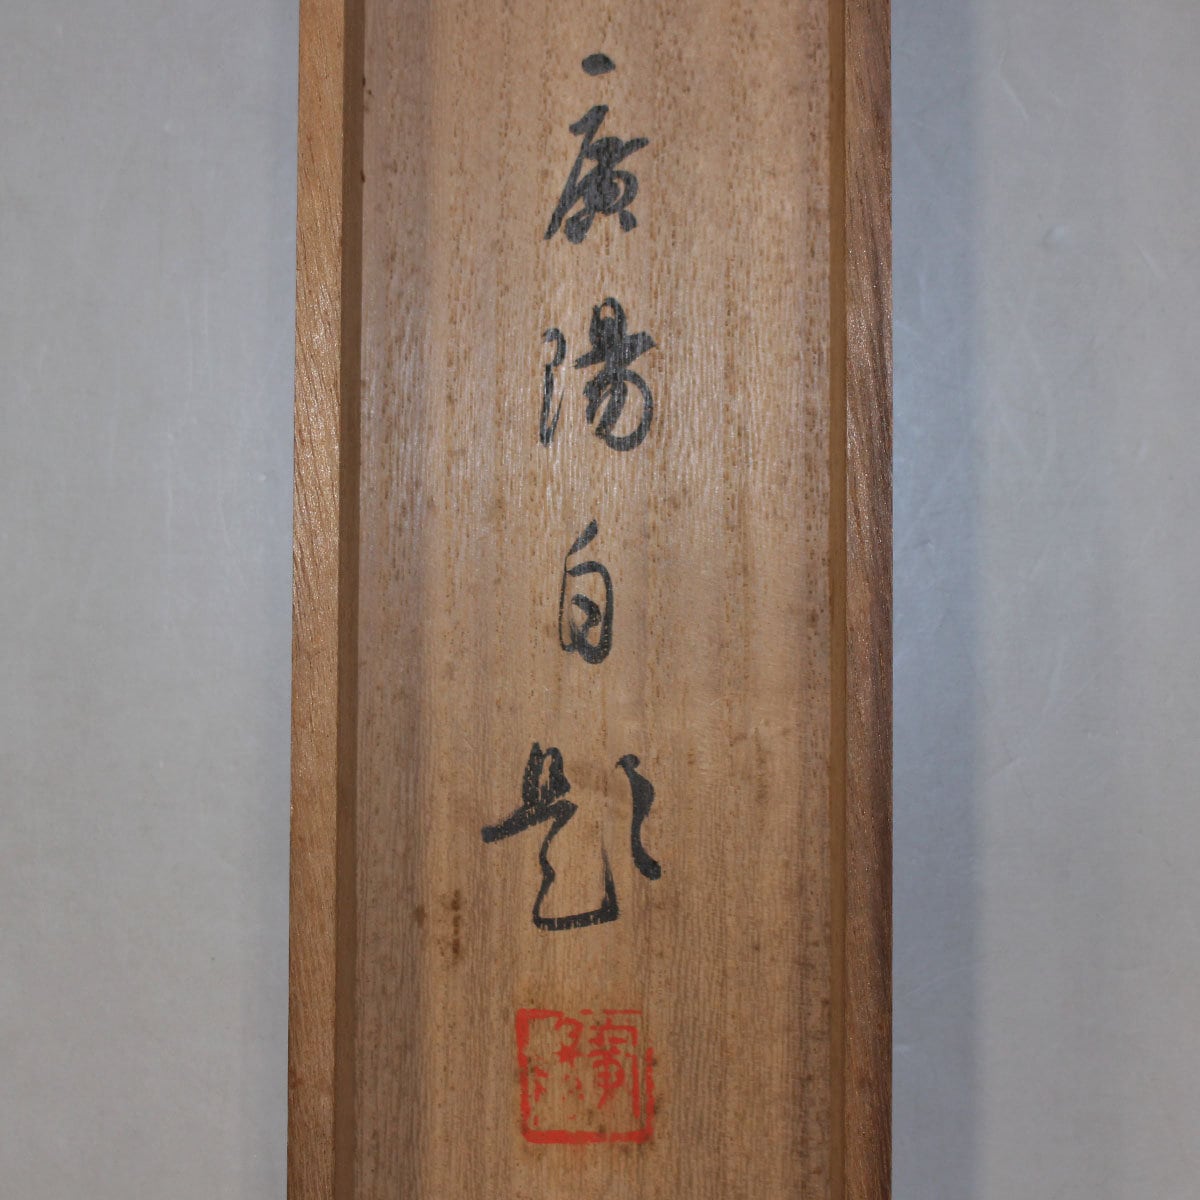 廣陽自題